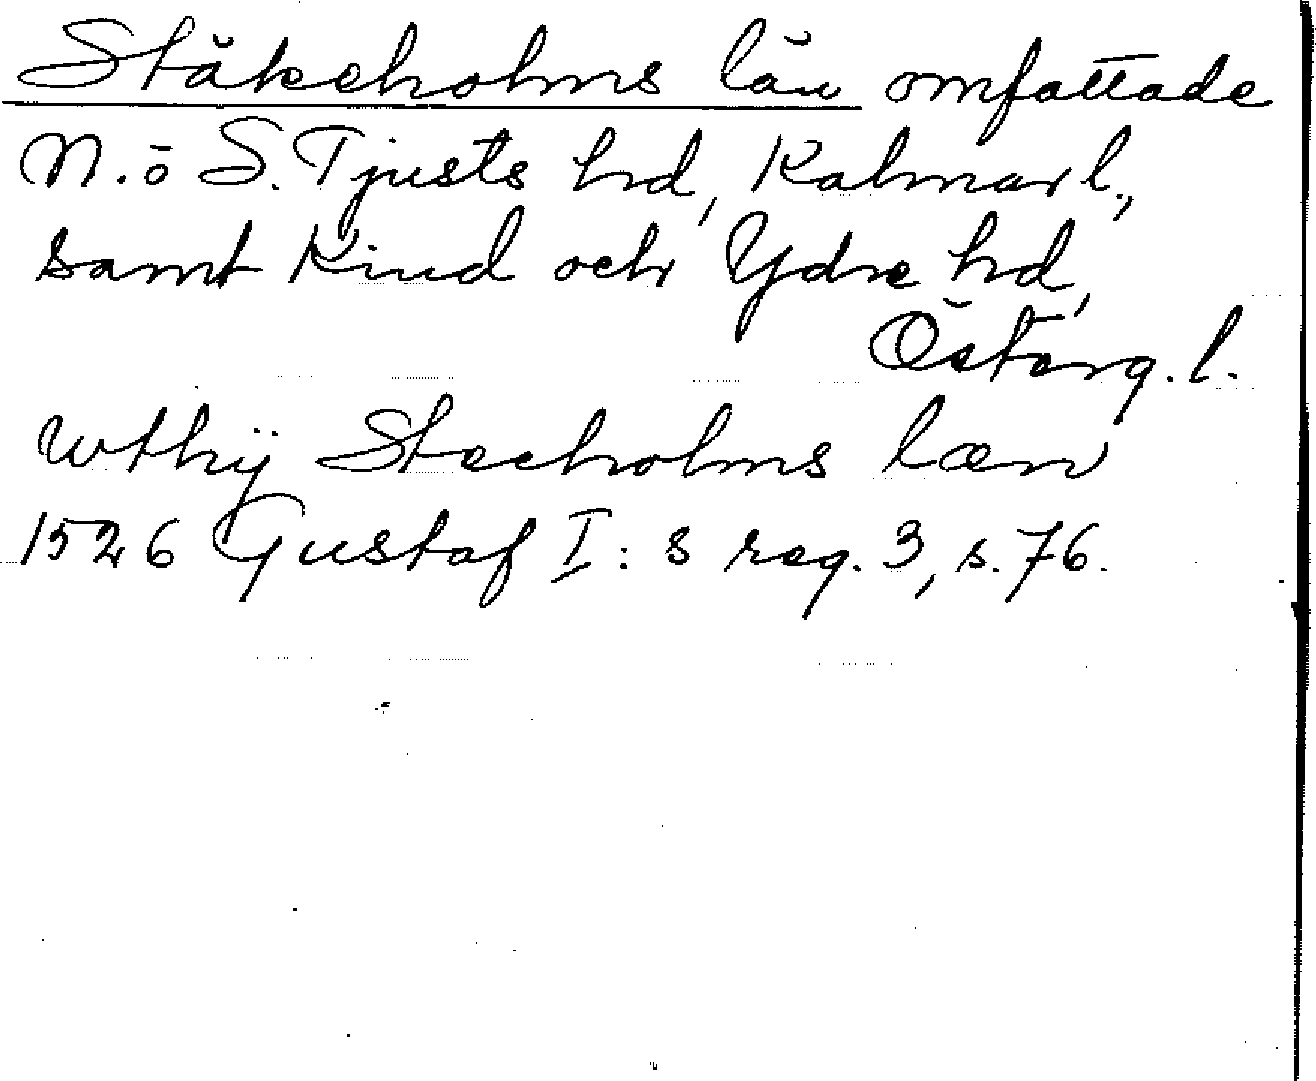 Stäkeholms län omfattade
N. o S. Tjusts hd, Kalmar l.,
samt Kind och Ydre hd,
Österg. l.
wthij Stecholms læn
1526 Gustaf I: s reg. 3, s. 76.